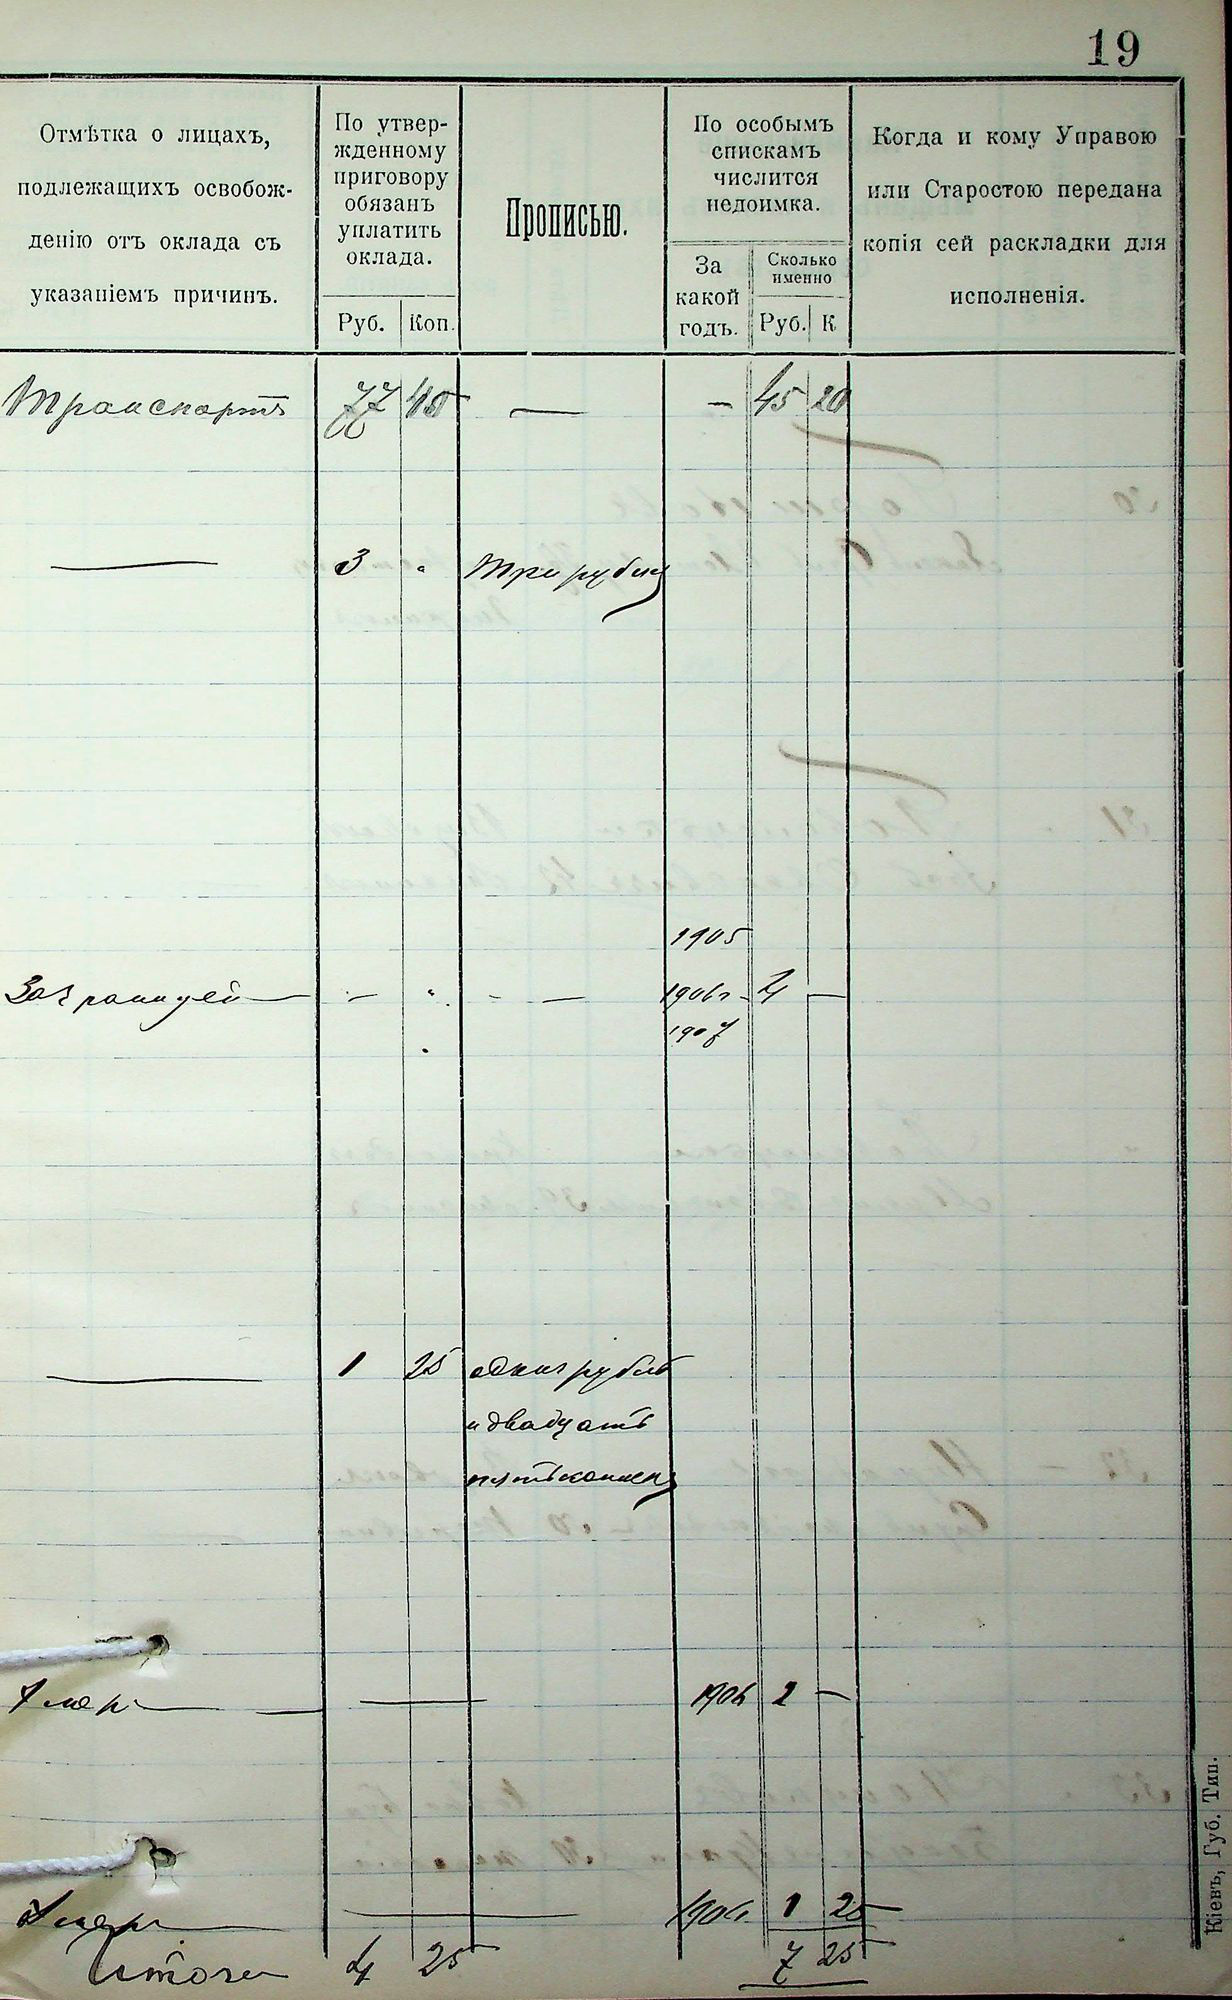 19
Отмѣтка о лицахъ,
подлежащихъ освобож-
денію отъ оклада съ
указаніемъ причинъ.
По утвер-
жденному
приговору
обязанъ
уплатить
оклада.
Руб. Коп.
Прописью.
По особымъ
спискамъ
числится
недоимка.
За
какой
годъ.
Сколько
именно
Руб. К.
Когда и кому Управою
или Старостою передана
копія сей раскладки для
исполненія.
Транспортъ 77 45 — — 45 20
— 3 " три рубля
1905
Заграницей — — " — — 1906 — 4 —
1907
— 1 25 одинъ рубль
и двадцать
пять копеекъ
Умеръ — — 1906 2 —
Умеръ — 1906 1 25
Итого 4 25 7 25
Кіевъ, Губ. Тип.